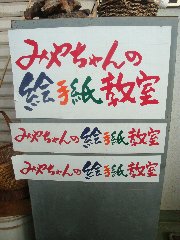 みやちゃんの
絵手紙教室
みやちゃんの絵手紙教室
みやちゃんの絵手紙教室